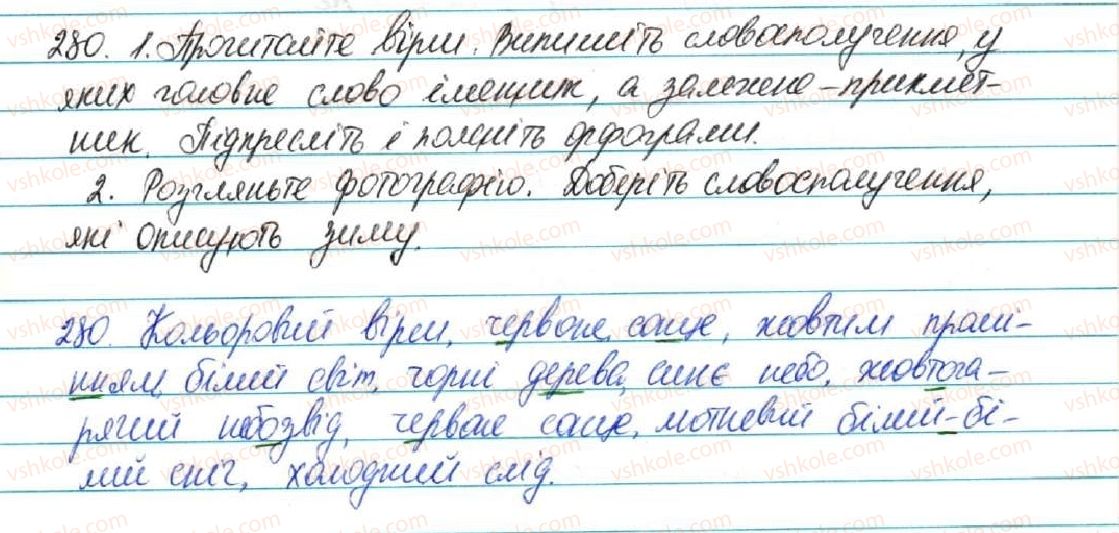 280. 1. Прочитайте вірш. Випишіть словосполучення, у
яких головне слово іменник, а залежне – прикмет-
ник. Підкресліть і поясніть орфограми.
2. Розгляньте фотографію. Доберіть словосполучення,
які описують зиму.
280. Кольоровий вірш, червоне сонце, жовтим промі-
нням, білий світ, чорні дерева, синє небо, жовтога-
рячий небозвід, червоне сонце, білий-бі-
лий сніг, холодний слід.
vshkole.com